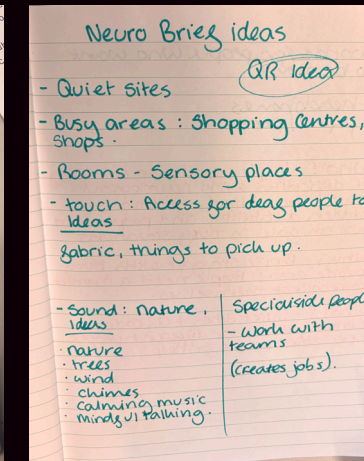 Neuro Brief ideas
QR idea
- Quiet sites
- Busy areas : Shopping Centres,
Shops.
- Rooms - Sensory places
- touch : Access for deaf people to
Ideas
fabric, things to pick up.
- Sound : nature,
Ideas
· nature
· trees
· wind
chimes
· calming music
· mindful talking.
- work with
teams
(creates jobs).